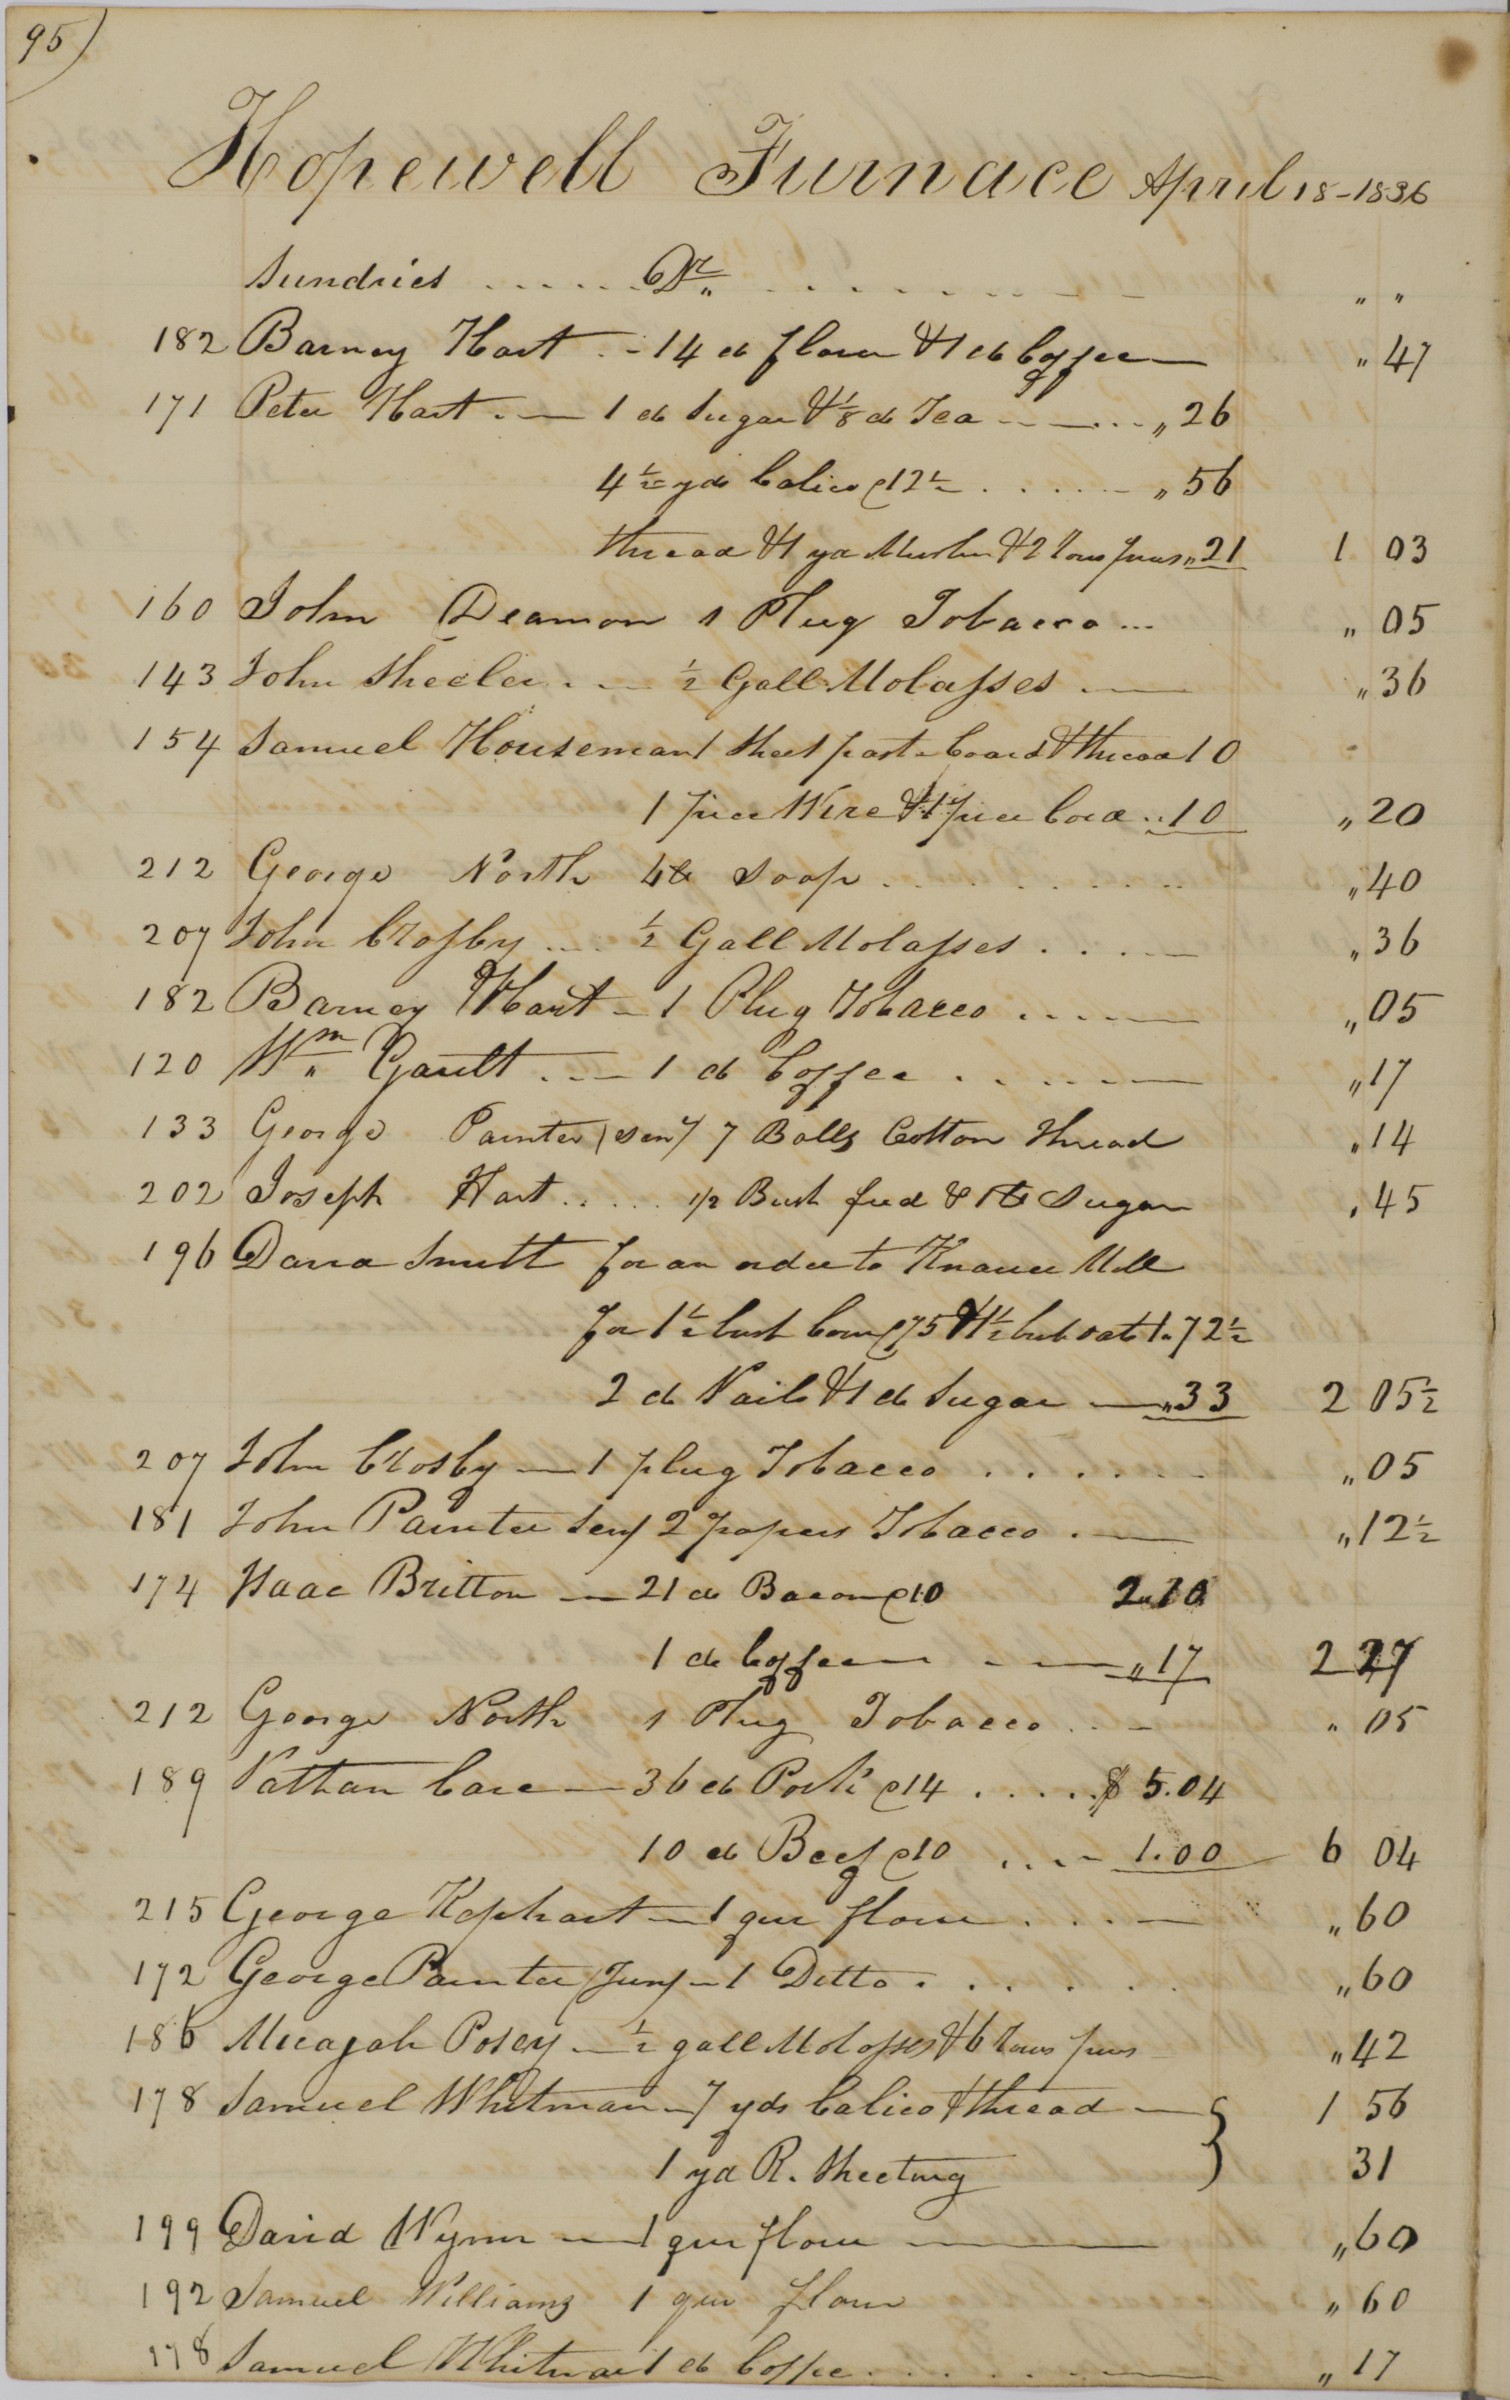 95)
Hopewell Furnace April 18-1836
Sundries ...... Dr. .......... " "
182 Barney Hart .- 14 lb flour & 1 lb Coffee — " 47
171 Peter Hart .— 1 lb Sugar & 1/8 lb Tea — ... " 26
4 1/2 yds Calico @12 1/2 ...... " 56
thread & 1 yd Muslin & 2 Rows pins " 21 1 03
160 John Deamon 1 Plug Tobacco ... " 05
143 John Sheeler .. — 1/2 Gall Molasses — " 36
154 Samuel Houseman 1 Sheet paste board & thread 10
1 piece Wire & 1 piece Cord .. 10 " 20
212 George North 4 lb Soap .......... " 40
207 John Crosby .... 1/2 Gall Molasses .... — " 36
182 Barney Hart - 1 Plug Tobacco ..... — " 05
120 Wm Gault .. — 1 lb Coffee ...... — " 17
133 George Painter (Senr 7 Balls Cotton thread " 14
202 Joseph Hart ..... 1/2 Bush feed & 1 lb Sugar " 45
196 David Smitt for an order to Knauer Mill
for 1 1/2 bush Corn @75 & 1 1/2 bush oats 1. 72 1/2
2 lb Nails & 1 lb Sugar — " 33 2 05 1/2
207 John Crosby — 1 plug Tobacco ...... " 05
181 John Painter Senr 2 papers Tobacco . — " 12 1/2
174 Isaac Britton — 21 lb Bacon @10 2.10
1 lb Coffee — — " 17 2 27
212 George North 1 Plug Tobacco .. - " 05
189 Nathan Care — 36 lb Pork @14 ..... $ 5.04
10 lb Beef @10 .... 1.00 6 04
215 George Kephart — 1 qur flour ... — " 60
172 George Painter (Junr - 1 Ditto ...... " 60
186 Micajah Posey — 1/2 gall Molasses & 6 Rows pins " 42
178 Samuel Whitman - 7 yds Calico & thread — } 1 56
1 yd R. Sheeting 31
199 David Wynn — 1 qur flour — " 60
192 Samuel Williams 1 qur flour " 60
178 Samuel Whitman 1 lb Coffee ....... — " 17